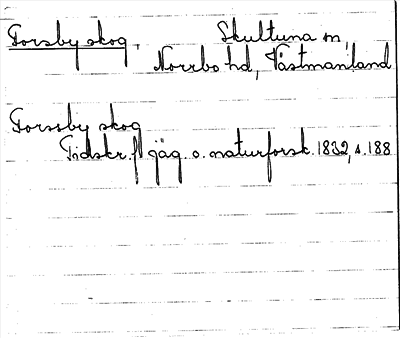 Forsby skog. Skultuna sn,
Norrbo hd, Västmanland
Forssby skog
Tidskr. f. jäg. o. naturforsk. 1832, s. 188